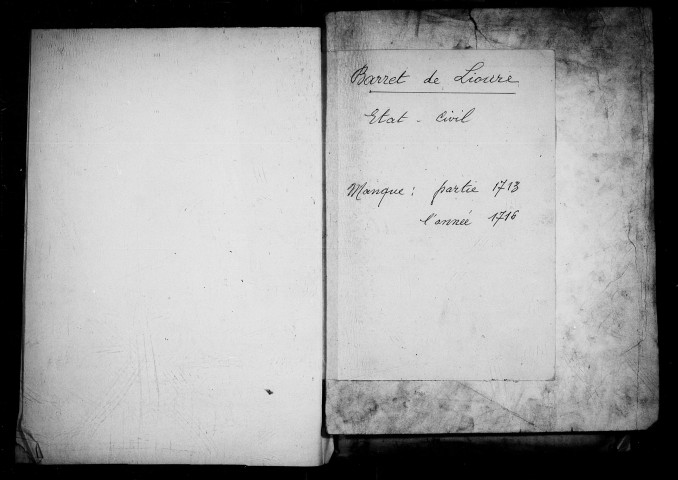 Barret de Lioure
Etat - civil
Manque : partie 1713
l'année 1716